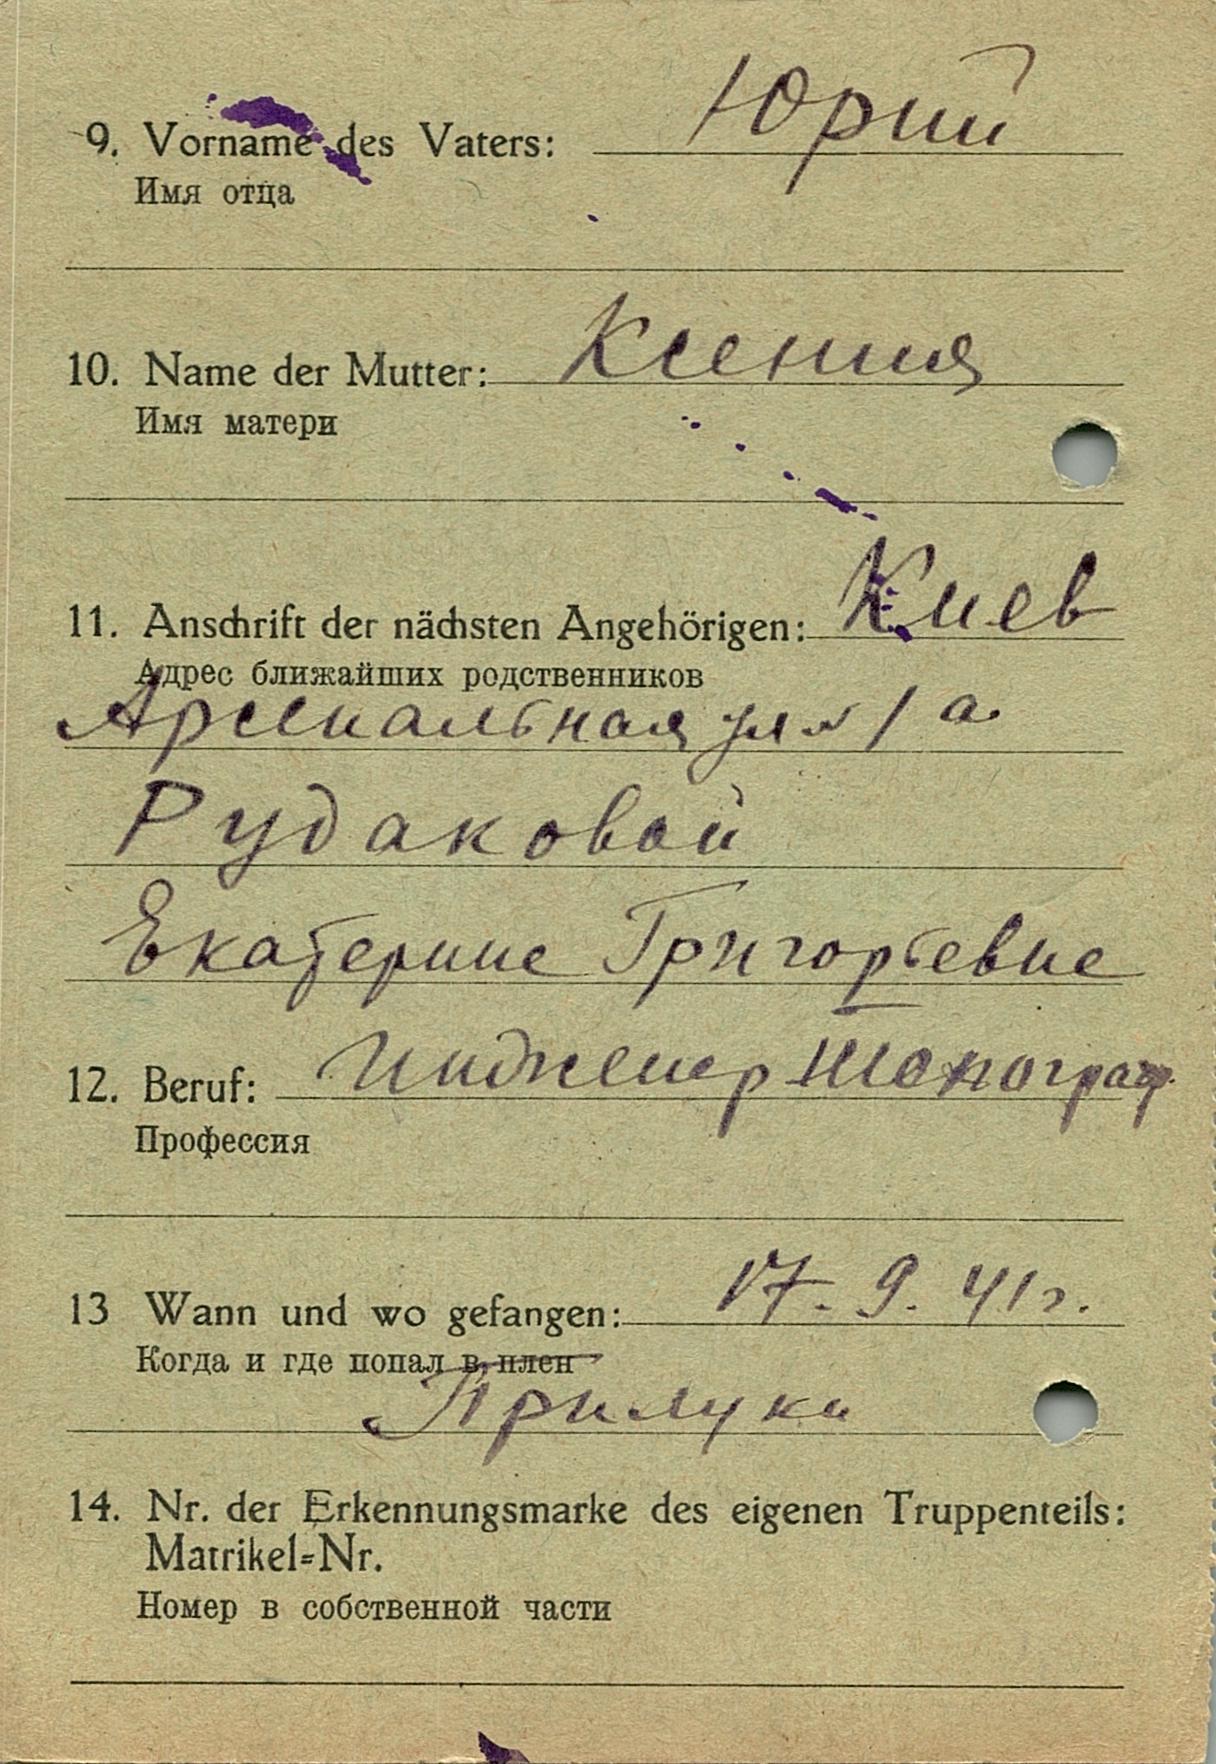 9. Vorname des Vaters: Юрий
Имя отца
10. Name der Mutter: Ксения
Имя матери
11. Anschrift der nächsten Angehörigen: Киев
Адрес ближайших родственников
Арсенальная ул № 1 а
Рудаковой
Екатерине Григорьевне
12. Beruf: Инженер
Профессия
13 Wann und wo gefangen: 17. 9. 41 г.
Когда и где попал в плен
Прилуки
14. Nr. der Erkennungsmarke des eigenen Truppenteils:
Matrikel=Nr.
Номер в собственной части